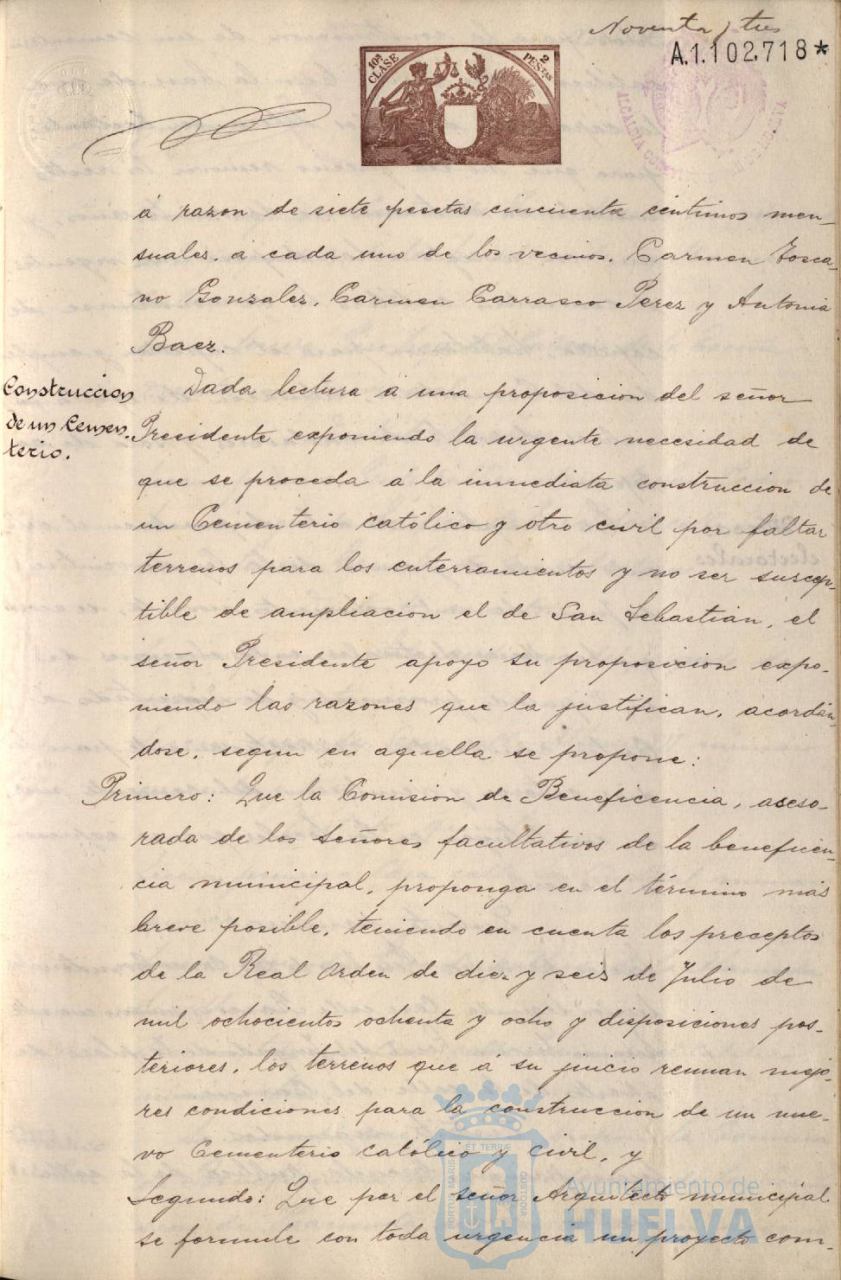 Noventa y tres
A.1.102.718*
10ª CLASE
2 PESETAS
á razon de siete pesetas cincuenta centimos men-
suales, á cada uno de los vecinos, Carmen Tosca-
no Gonzalez, Carmen Carrasco Perez y Antonia
Baez.
Construccion
de un Cemen-
terio.
Dada lectura á una proposicion del señor
Presidente exponiendo la urgente necesidad de
que se proceda á la inmediata construccion de
un Cementerio católico y otro civil por faltar
terrenos para los enterramientos y no ser suscep-
tible de ampliacion el de San Sebastian, el
señor Presidente apoyó su proposicion expo-
niendo las razones que la justifican, acordán-
dose, segun en aquella se propone:
Primero: Que la Comision de Beneficencia, aseso-
rada de los señores facultativos de la beneficen-
cia municipal, proponga en el término más
breve posible, teniendo en cuenta los preceptos
de la Real orden de diez y seis de Julio de
mil ochocientos ochenta y ocho y disposiciones pos-
teriores, los terrenos que á su juicio reunan mejo-
res condiciones para la construccion de un nue-
vo Cementerio católico y civil, y
Segundo: Que por el señor Arquitecto municipal
se formule con toda urgencia un proyecto com-
Ayuntamiento de
HUELVA